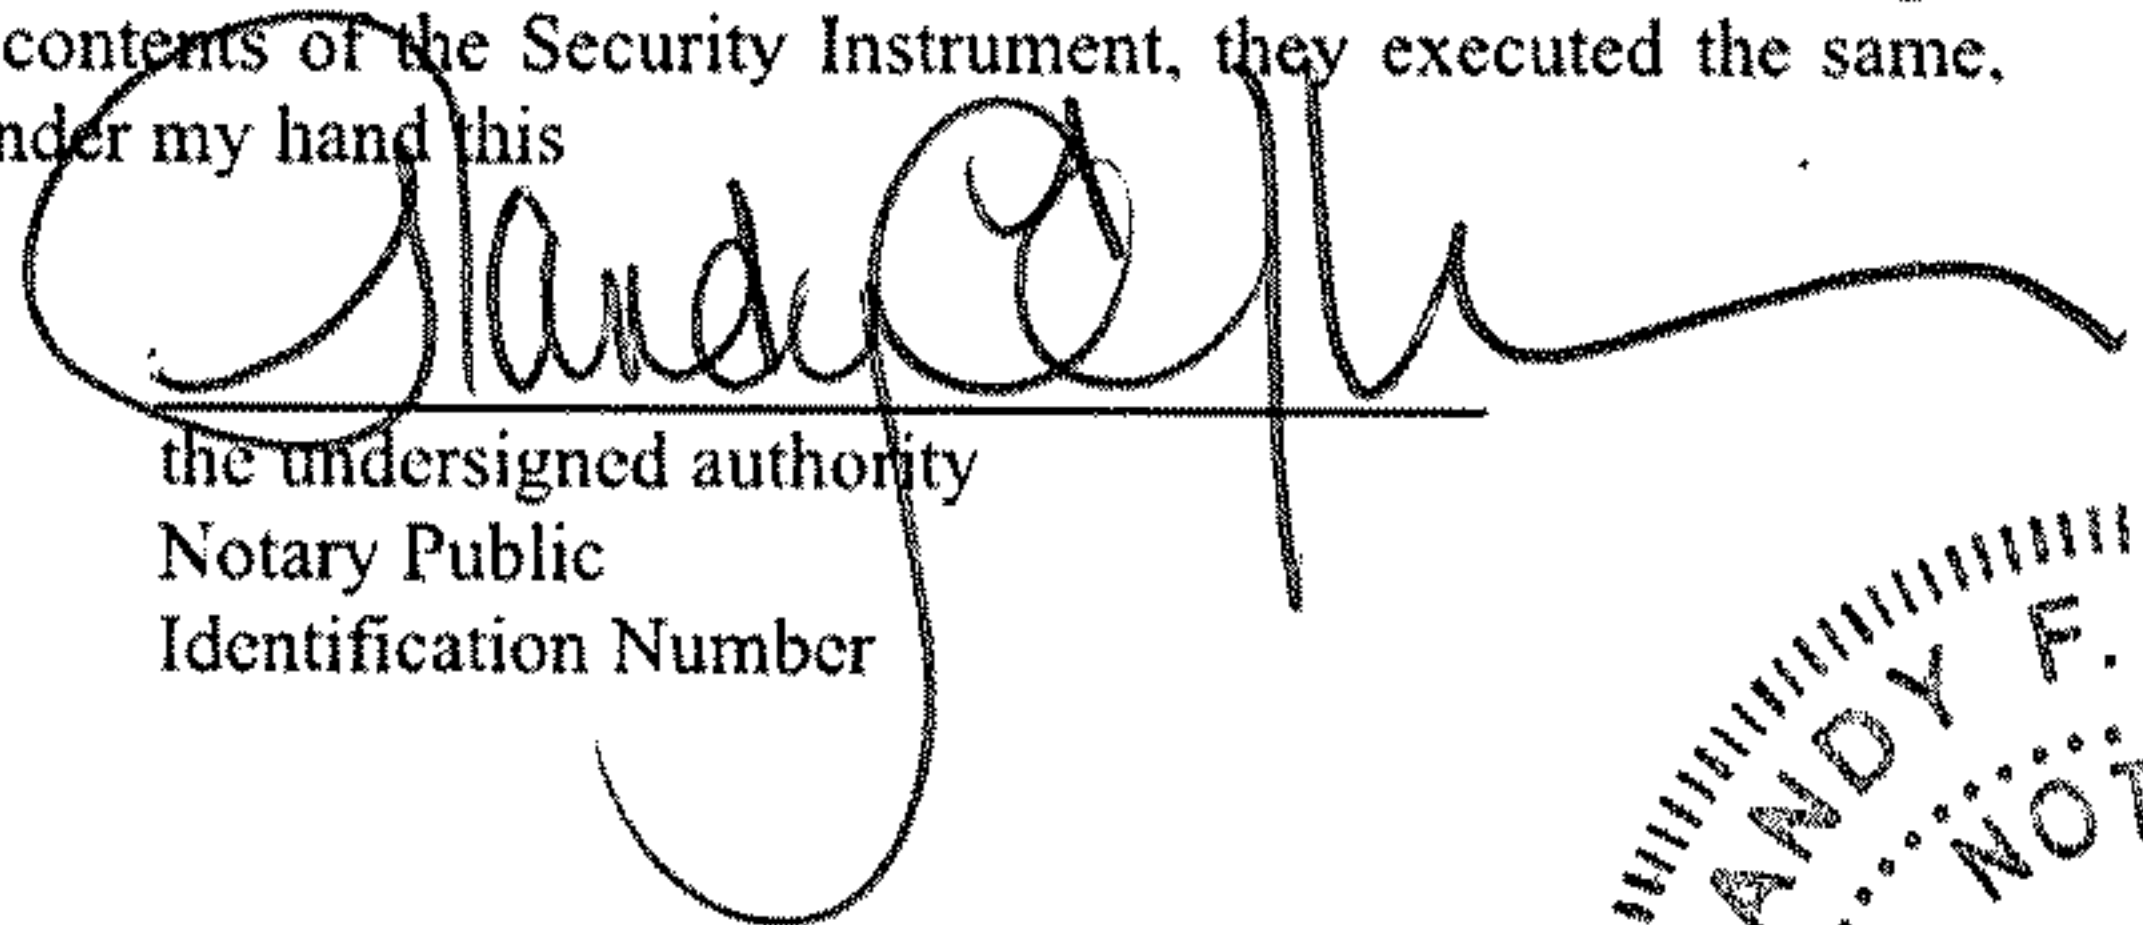 contents of the Security Instrument, they executed the same,
nder my hand this
the undersigned authority
Notary Public
Identification Number
ANDY F.
NOT